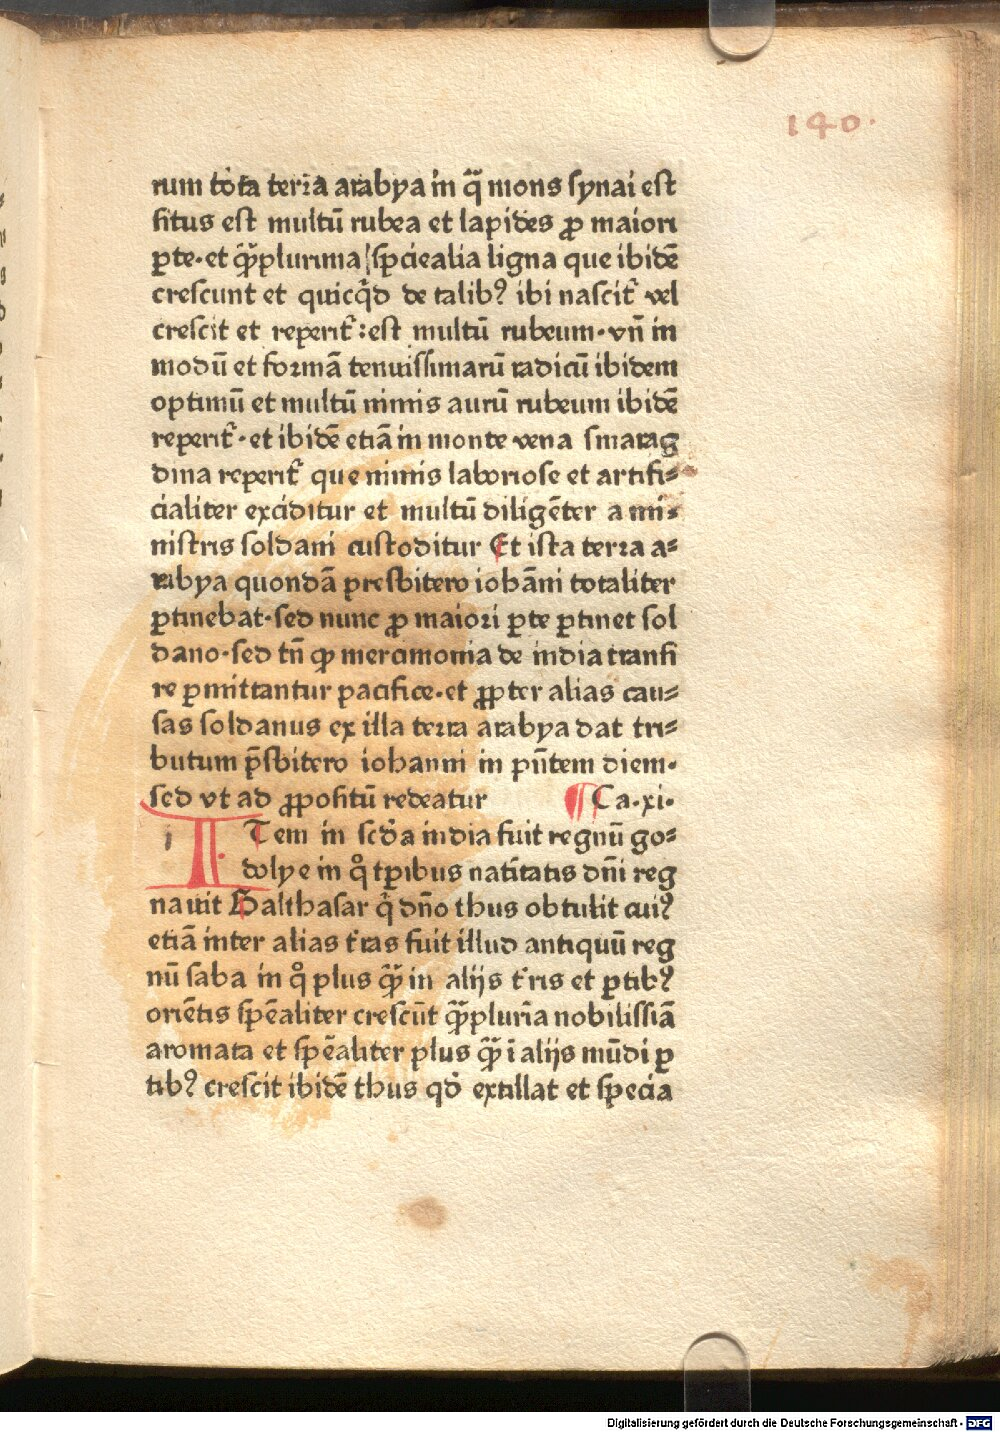 140.
rum tota terra arabya in q̄ mons synai est
situs est multū rubea et lapides ꝓ maiori
ꝑte·et q̄ꝫplurima spciealia ligna que ibidē
crescunt et quicq̇d de talibꝰ ibi nascit᷑ vel
crescit et reperit᷑:est multū rubeum·vn̄ in
modū et formā tenuissimarū radicū ibidem
optimū et multū nimis aurū rubeum ibidē
reperit᷑·et ibidē etiā in monte vena smarag
dina reperit᷑ que nimis laboriose et artifi⸗
cialiter exciditur et multū diligēter a mi⸗
nistris soldani custoditur Et ista terra a⸗
rabya quondā presbitero iohāni totaliter
ꝑtinebat·sed nunc ꝓ maiori ꝑte ꝑtinet sol
dano·sed tn̄ ꝙ mercimonia de india transi
re ꝑmittantur pacifice·et ꝓpter alias cau⸗
sas soldanus ex illa terra arabya dat tri⸗
butum p̄sbitero iohanni in pn̄tem diem·
sed vt ad ꝓpositū redeatur ¶ Ca·xi·
i ITem in scd̄a india fuit regnū go⸗
dolye in q̊ tꝑibus natiītatis dn̄i reg
nauit Balthasar q̇ dn̄o thus obtulit cuiꝰ
etiā inter alias t̄ras fuit illud antiquū reg
nū saba in q̊ plus q̄ꝫ in alijs t̄ris et ꝑtibꝰ
oriētis spēaliter crescūt q̄ꝫpluria nobilissiā
aromata et spēaliter plus q̄ꝫ ī alijs mūdi ꝑ
tibꝰ crescit ibidē thus qd̄ extillat et specia
Digitalisierung gefördert durch die Deutsche Forschungsgemeinschaft - DFG